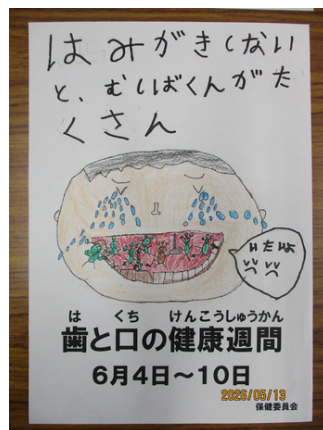 はみがきしない
と、むしばくんがた
くさん
いたいよ
は くち けんこうしゅうかん
歯と口の健康週間
6月4日～10日
2026/05/13
保健委員会